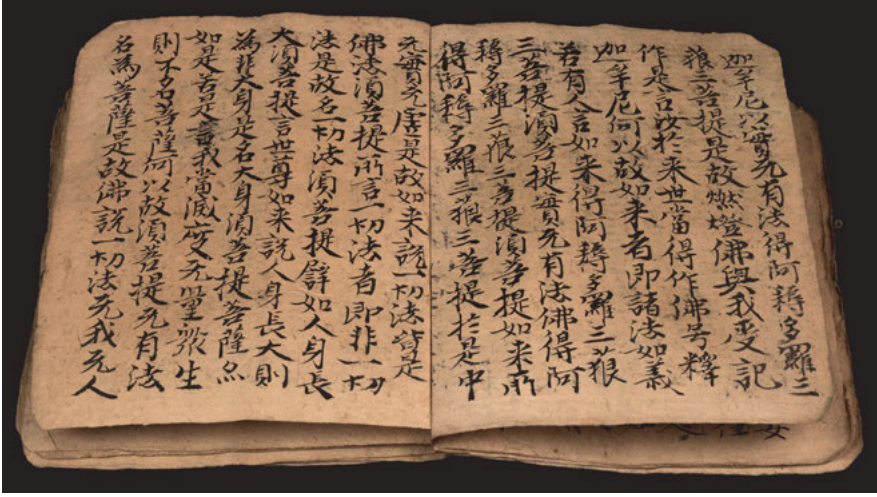 迦牟尼以實无有法得阿耨多羅三
藐三菩提是故燃燈佛與我受記
作是言汝於来世當得作佛号釋
迦牟尼何以故如来者即諸法如義
若有人言如来得阿耨多羅三藐
三菩提湏菩提實无有法佛得阿
耨多羅三藐三菩提湏菩提如来所
得阿耨多羅三藐三菩提於是中
无實无虗是故如来說一切法皆是
佛法湏菩提所言一切法者即非一切
法是故名一切法湏菩提譬如人身長
大湏菩提言世尊如来說人身長大則
為非大身是名大身湏菩提菩薩亦
如是若是言我當滅度无量衆生
則不名菩薩何以故湏菩提无有法
名為菩薩是故佛說一切法无我无人